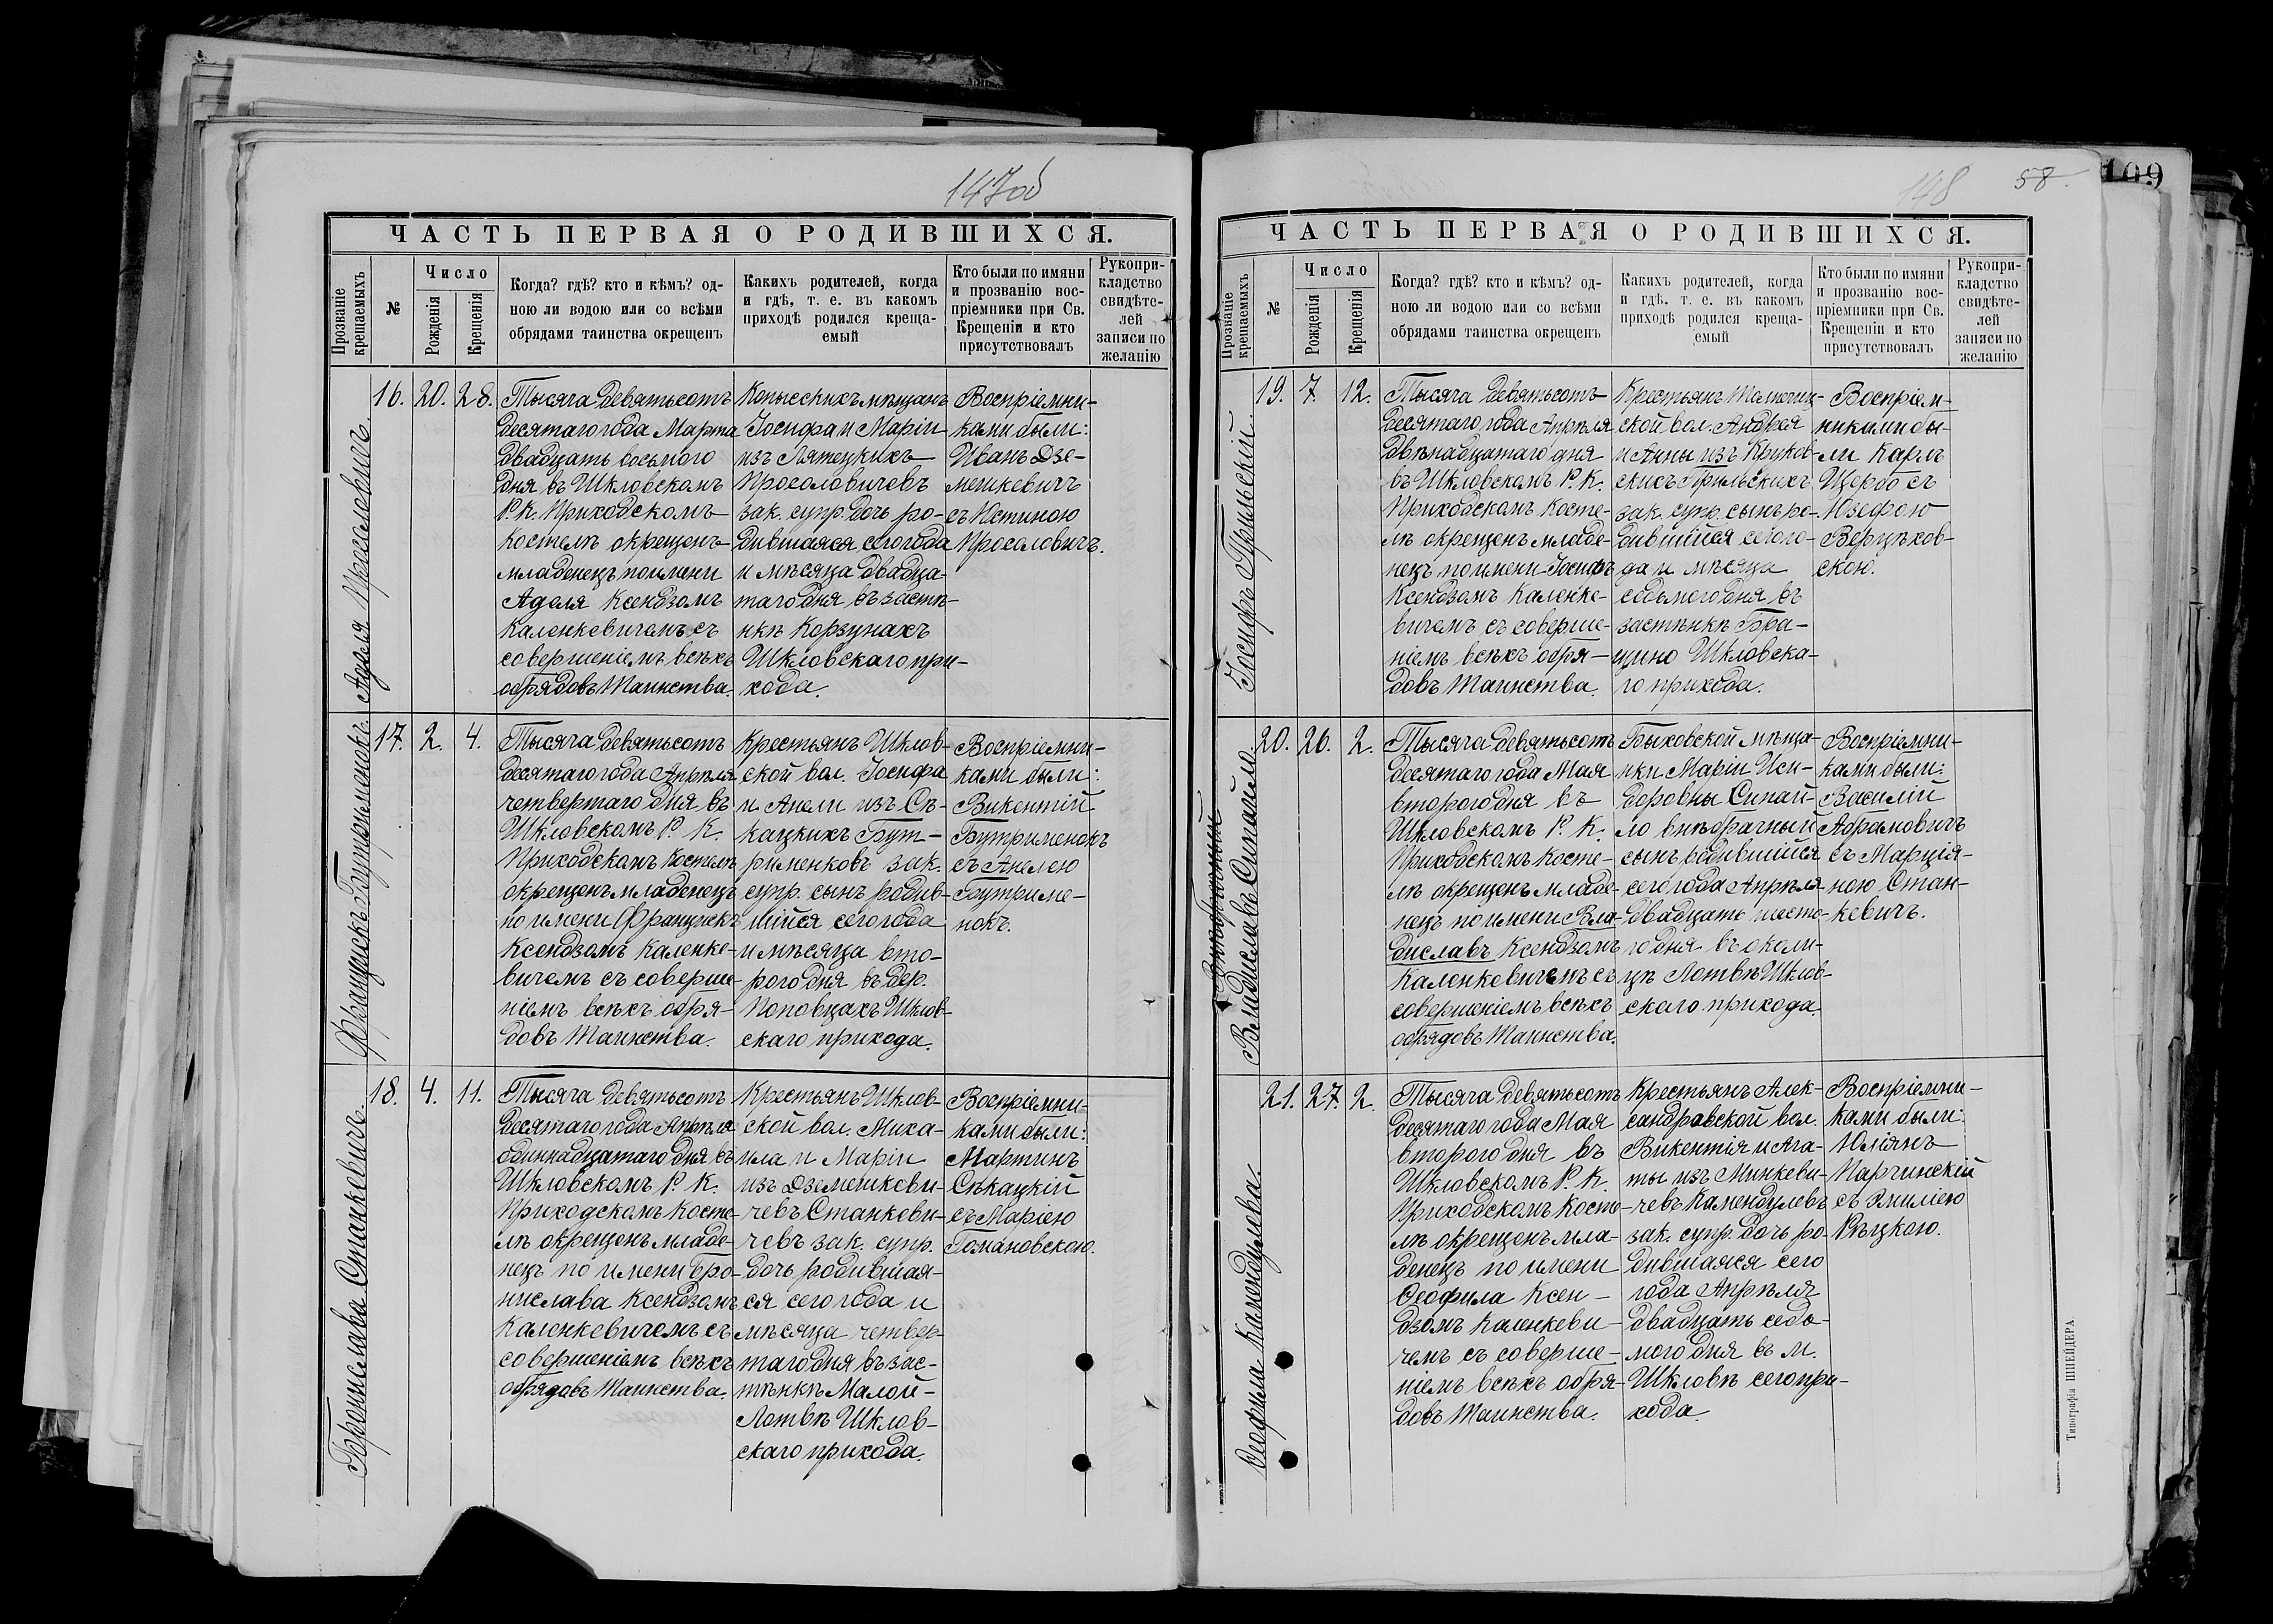 147об
ЧАСТЬ ПЕРВАЯ О РОДИВШИХСЯ.
Прозваніе крещаемыхъ
№
Число
Рожденія
Крещенія
Когда? гдѣ? кто и кѣмъ? од-
ною ли водою или со всѣми
обрядами таинства окрещенъ
Какихъ родителей, когда
и гдѣ, т. е. въ какомъ
приходѣ родился креща-
емый
Кто были по имяни
и прозванію вос-
пріемники при Св.
Крещеніи и кто
присутствовалъ
Рукопри-
кладство
свидѣте-
лей
записи по
желанію
Аделя Просаловичъ.
16.
20.
28.
Тысяча девятьсотъ
десятаго года Марта
двадцать восьмого
дня въ Шкловскомъ
Р. К. Приходскомъ
костелѣ окрещенъ
младенецъ по имени
Аделя Ксендзомъ
Каленкевичемъ съ
совершеніемъ всѣхъ
обрядовъ Таинства.
Копысскихъ мѣщанъ
Іосифа и Маріи
изъ Лятецкихъ
Просаловичовъ
зак. супр. дочь ро-
дившаяся сего года
и мѣсяца двадца-
таго дня въ застѣ-
нкѣ Корзунахъ
Шкловскаго при-
хода.
Воспріемни-
ками были:
Иванъ Дзе-
мешкевичъ
съ Юстиною
Просаловичъ.
Францискъ Бутрименокъ.
17.
2.
4.
Тысяча девятьсотъ
десятаго года Апрѣля
четвертаго дня въ
Шкловскомъ Р. К.
Приходскомъ Костелѣ
окрещенъ младенецъ
по имени Францискъ
Ксендзомъ Каленке-
вичемъ съ соверше-
ніемъ всѣхъ обря-
довъ Таинства.
Крестьянъ Шклов-
ской вол. Іосифа
и Анели изъ Сѣ-
кацкихъ Бут-
рименковъ зак.
супр. сынъ родив-
шійся сего года
и мѣсяца вто-
рого дня въ дер.
Поповцахъ Шклов-
скаго прихода.
Воспріемни-
ками были:
Викентій
Бутрименокъ
съ Анелею
Бутриме-
нокъ.
Бронислава Станкевичъ.
18.
4.
11.
Тысяча девятьсотъ
десятаго года Апрѣля
одиннадцатаго дня въ
Шкловскомъ Р. К.
Приходскомъ Косте-
лѣ окрещенъ младе-
нецъ по имени Бро-
нислава Ксендзомъ
Каленкевичемъ съ
совершеніемъ всѣхъ
обрядовъ Таинства.
Крестьянъ Шклов-
ской вол. Миха-
ила и Маріи
изъ Дземешкеви-
чевъ Станкеви-
чевъ зак. супр.
дочь родившая-
ся сего года и
мѣсяца четвер-
таго дня въ зас-
тѣнкѣ Малой-
Лотвѣ Шклов-
скаго прихода.
Воспріемни-
ками были:
Мартинъ
Сѣкацкій
съ Маріею
Гомановскою.
148
58
109
ЧАСТЬ ПЕРВАЯ О РОДИВШИХСЯ.
Прозваніе крещаемыхъ
№
Число
Рожденія
Крещенія
Когда? гдѣ? кто и кѣмъ? од-
ною ли водою или со всѣми
обрядами таинства окрещенъ
Какихъ родителей, когда
и гдѣ, т. е. въ какомъ
приходѣ родился креща-
емый
Кто были по имяни
и прозванію вос-
пріемники при Св.
Крещеніи и кто
присутствовалъ
Рукопри-
кладство
свидѣте-
лей
записи по
желанію
Іосифъ Брильскій.
19.
7.
12.
Тысяча девятьсотъ
десятаго года Апрѣля
двѣнадцатаго дня
въ Шкловскомъ Р. К.
Приходскомъ Косте-
лѣ окрещенъ младе-
нецъ по имени Іосифъ
Ксендзомъ Каленке-
вичемъ съ соверше-
ніемъ всѣхъ обря-
довъ Таинства.
Крестьянъ
ской вол. Андрея
и Анны изъ Круков-
скихъ Брильскихъ
зак. супр. сынъ ро-
дившійся сего го-
да и мѣсяца
седьмого дня въ
застѣнкѣ Бра-
щино Шкловска-
го прихода.
Воспріем-
никами бы-
ли Карлъ
Щербо съ
Юзефою
Верцѣхов-
скою.
Внѣбрачный
Владиславъ Сипайло.
20.
26.
2.
Тысяча девятьсотъ
десятаго года Мая
второго дня въ
Шкловскомъ Р. К.
Приходскомъ Косте-
лѣ окрещенъ младе-
нецъ по имени Вла-
диславъ Ксендзомъ
Каленкевичемъ съ
совершеніемъ всѣхъ
обрядовъ Таинства.
Быховской мѣща-
нки Маріи Иси-
доровны Сипай-
ло внѣбрачный
сынъ родившійся
сего года Апрѣля
двадцать шесто-
го дня въ околи-
цѣ Лотвѣ Шклов-
скаго прихода.
Воспріемни-
ками были:
Василій
Абрамовичъ
съ Марція-
ною Стан-
кевичъ.
Ѳеофила Камендулева.
21.
27.
2.
Тысяча девятьсотъ
десятаго года Мая
второго дня въ
Шкловскомъ Р. К.
Приходскомъ Косте-
лѣ окрещенъ мла-
денецъ по имени
Ѳеофила Ксен-
дзомъ Каленкеви-
чемъ съ соверше-
ніемъ всѣхъ обря-
довъ Таинства.
Крестьянъ Алек-
сандровской вол.
Викентія и Ага-
ты изъ Минкеви-
чевъ Камендулевъ
зак. супр. дочь ро-
дившаяся сего
года Апрѣля
двадцать седь-
мого дня въ м.
Шкловѣ сего при-
хода.
Воспріемни-
ками были:
Юліянъ
Парчинскій
съ Эмиліею
Рѣцкою.
Типографія ШПЕЙДЕРА